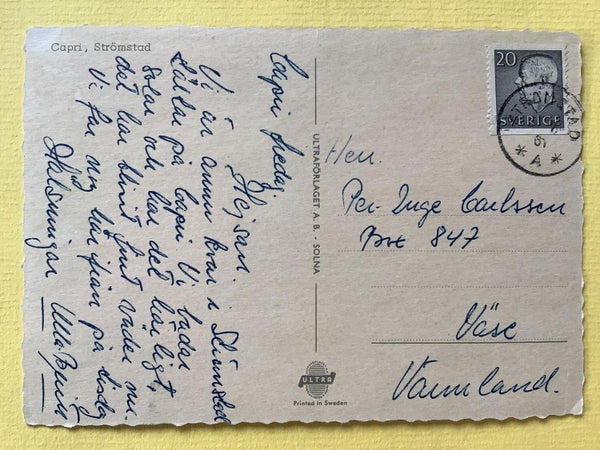 Capri, Strömstad
Capri fredag.
Hejsan.
Vi är ännu kvar i Strömstad
låtta på Capri Vi badar
solar och har det härligt,
det har blivit fint väder nu.
Vi far nog här från på tisdag
Hälsningar Ulla Britt
ULTRAFÖRLAGET A. B. - SOLNA
ULTRA
Printed in Sweden
20
SVERIGE
A
Herr.
Per-Inge Carlssen
Box 847
Väse
Värmland.